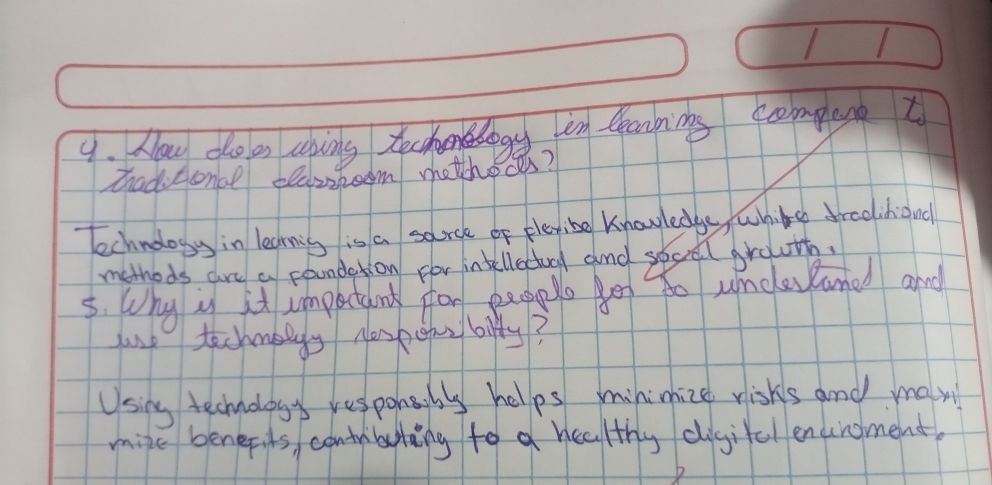 4. How does using technology in learning compare to
traditional classroom methods?
Technology in learnig is a source of flexibe knowledge, while traditional
methods are a foundation for intellectual and social growth.
5. Why is it important for people for to understand and
use technology responsibilty?
Using technology responsibly helps minimize risks and maxi
mize benefits, contributing to a healthy digital enviroment.